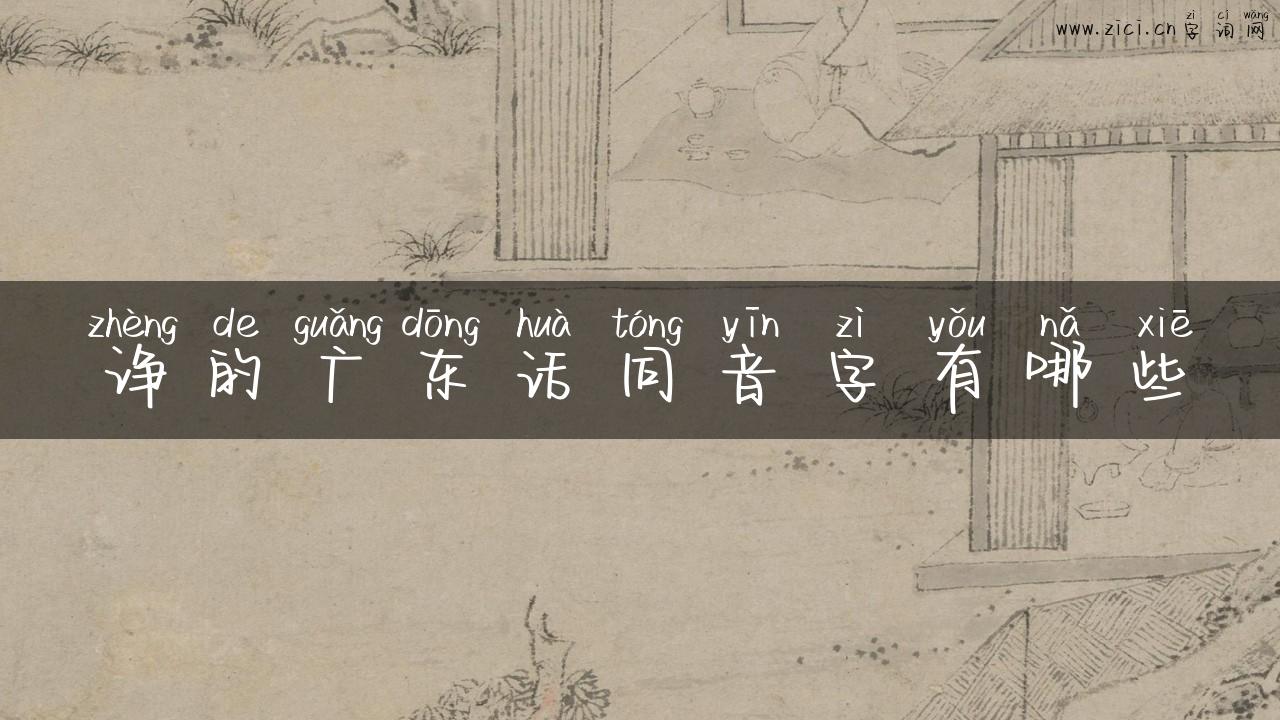 zì cí wǎng
www.zici.cn 字词网
zhèng de guǎng dōng huà tóng yīn zì yǒu nǎ xiē
诤的广东话同音字有哪些